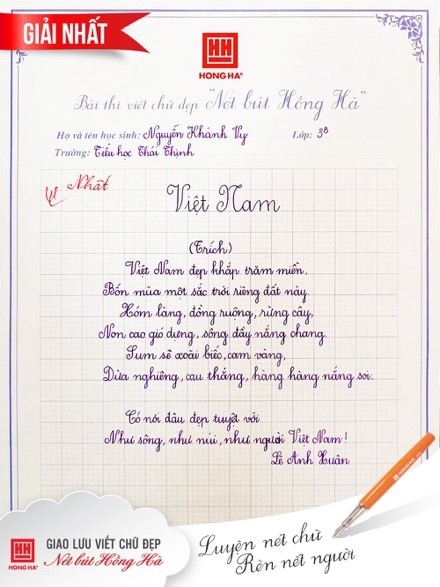 GIẢI NHẤT
HH
HONG HA
Bài thi viết chữ đẹp "Nét bút Hồng Hà"
Họ và tên học sinh: Nguyễn Khánh Vy Lớp: 3B
Trường: Tiểu học Thái Thịnh
Nhất
Việt Nam
(Trích)
Việt Nam đẹp khắp trăm miền,
Bốn mùa một sắc trời riêng đất này
Xóm làng, đồng ruộng, rừng cây,
Non cao gió dựng, sông đầy nắng chang.
Sum sê xoài biếc, cam vàng,
Dừa nghiêng, cau thẳng, hàng hàng nắng soi.
Có nơi đâu đẹp tuyệt vời
Như sông, như núi, như người Việt Nam!
Lê Anh Xuân
HH
HONG HA
GIAO LƯU VIẾT CHỮ ĐẸP
Nét bút Hồng Hà
Luyện nét chữ
Rèn nết người